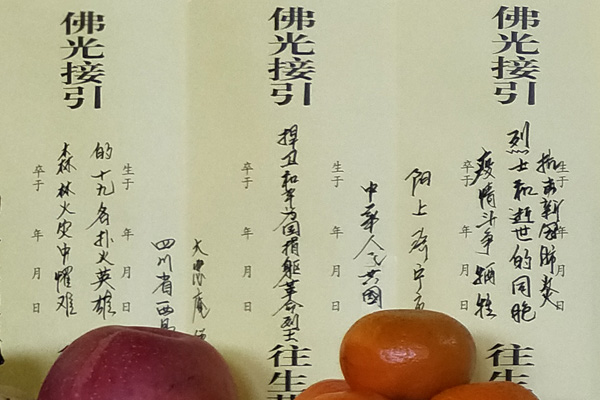 佛光接引
生于 年 月 日
抗击新冠肺炎
疫情斗争牺牲
烈士和逝世的同胞
卒于 年 月 日
往生
阳上
佛光接引
生于 年 月 日
中华人民共国
捍卫和平为国捐躯革命烈士
卒于 年 月 日
往生
佛光接引
生于 年 月 日
四川省西昌
森林火灾中罹难
的十九名扑火英雄
卒于 年 月 日